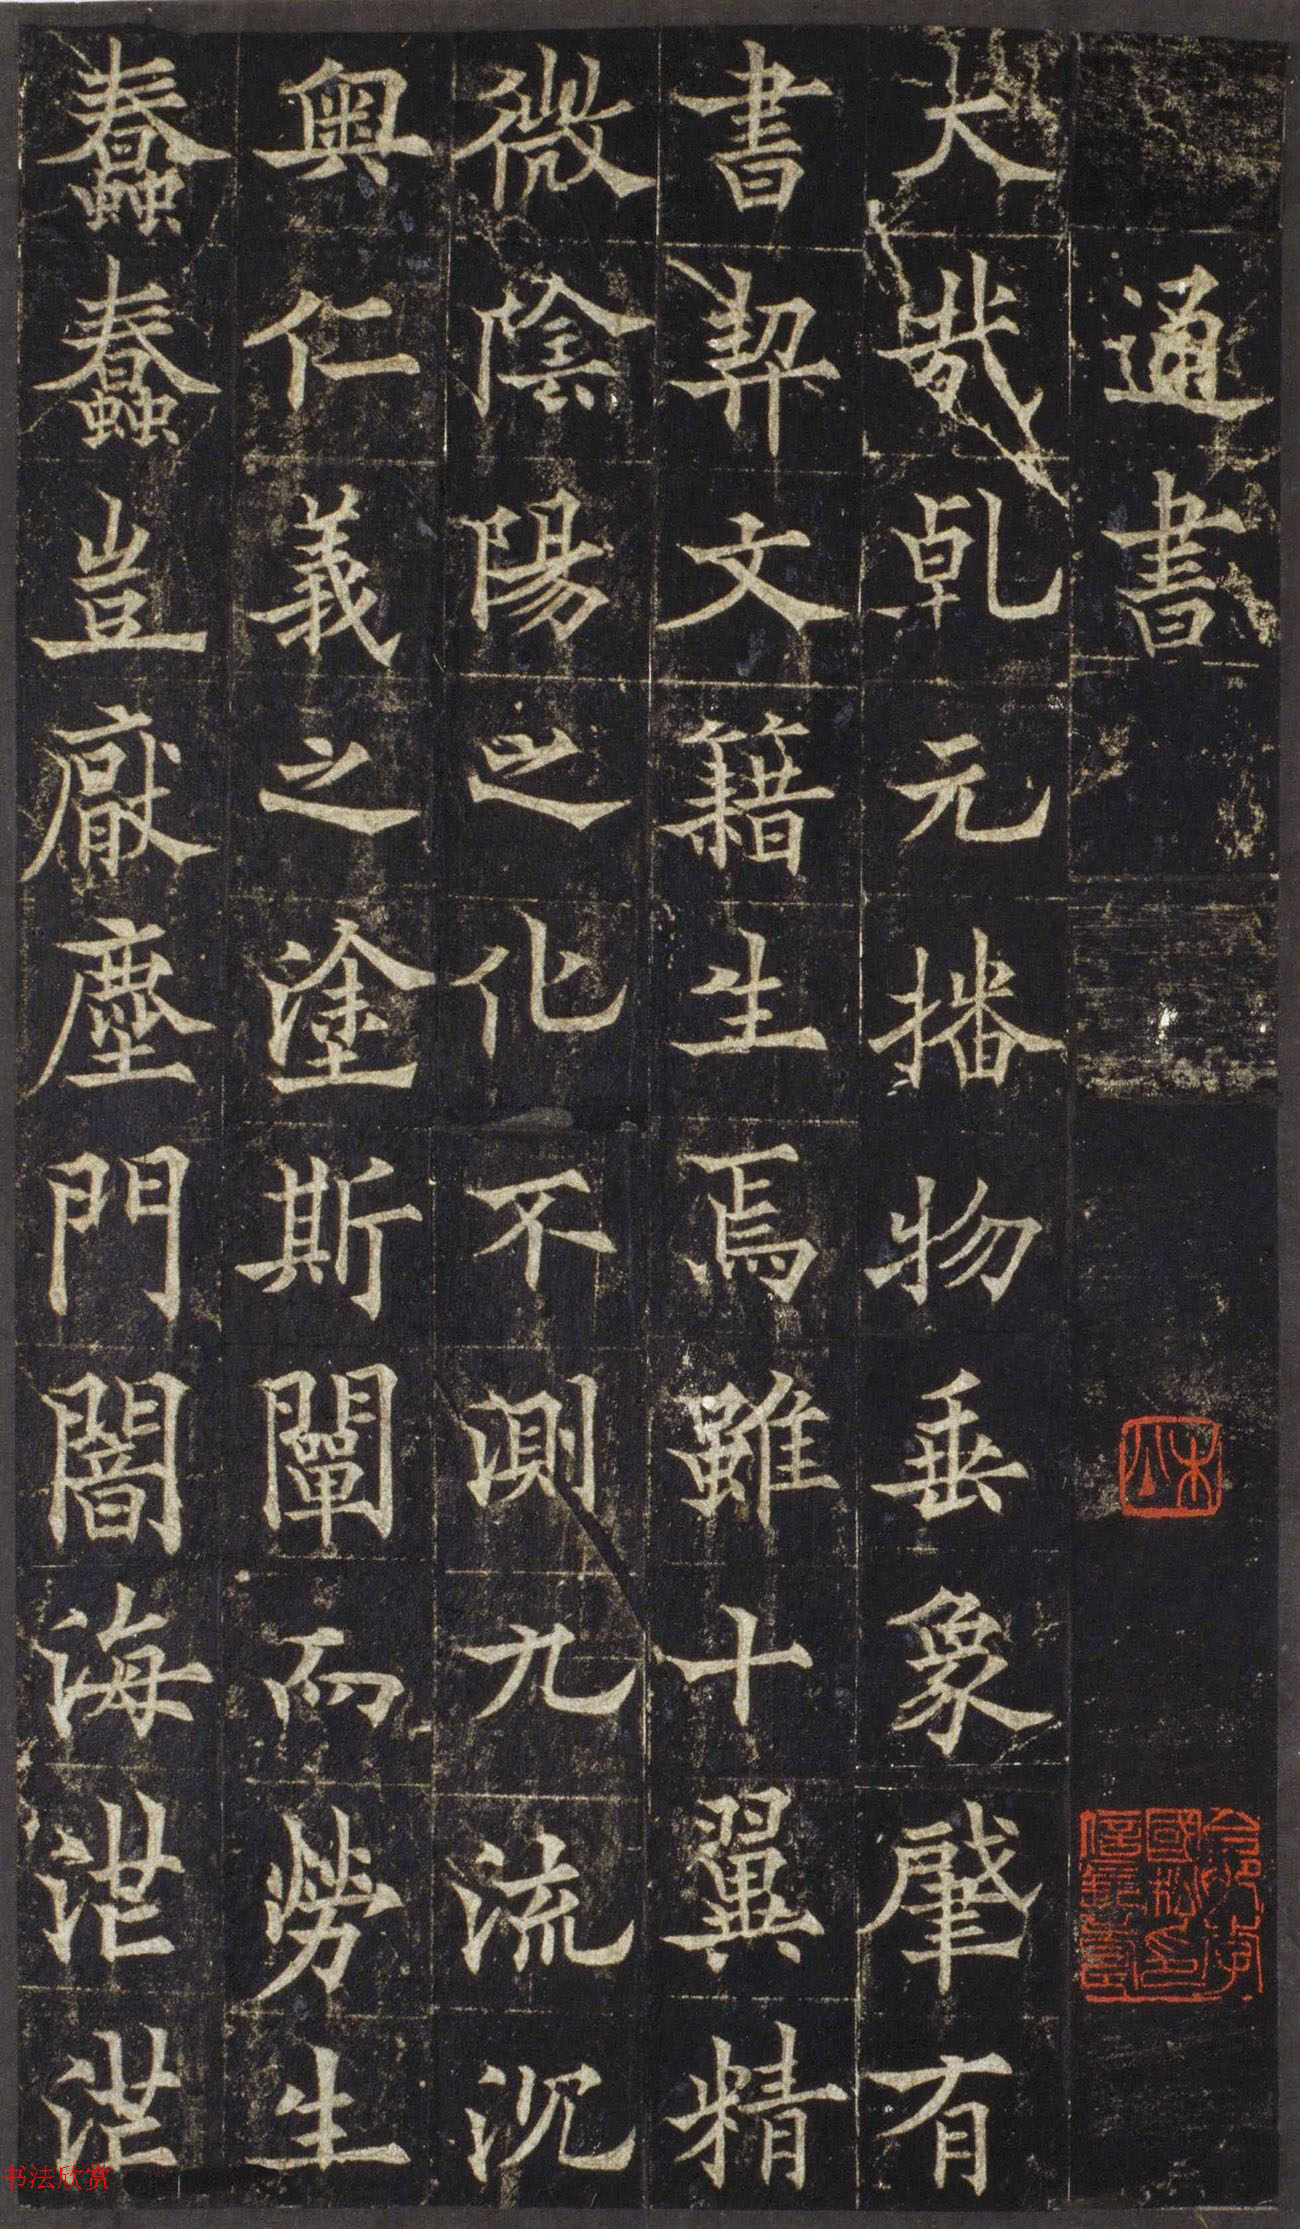 通書
大哉乹元播物垂象肈有
書契文籍生焉雖十翼精
微陰陽之化不測九流沉
奧仁義之塗斯闡而勞生
蠢蠢豈厭塵門闇海茫茫
书法欣赏